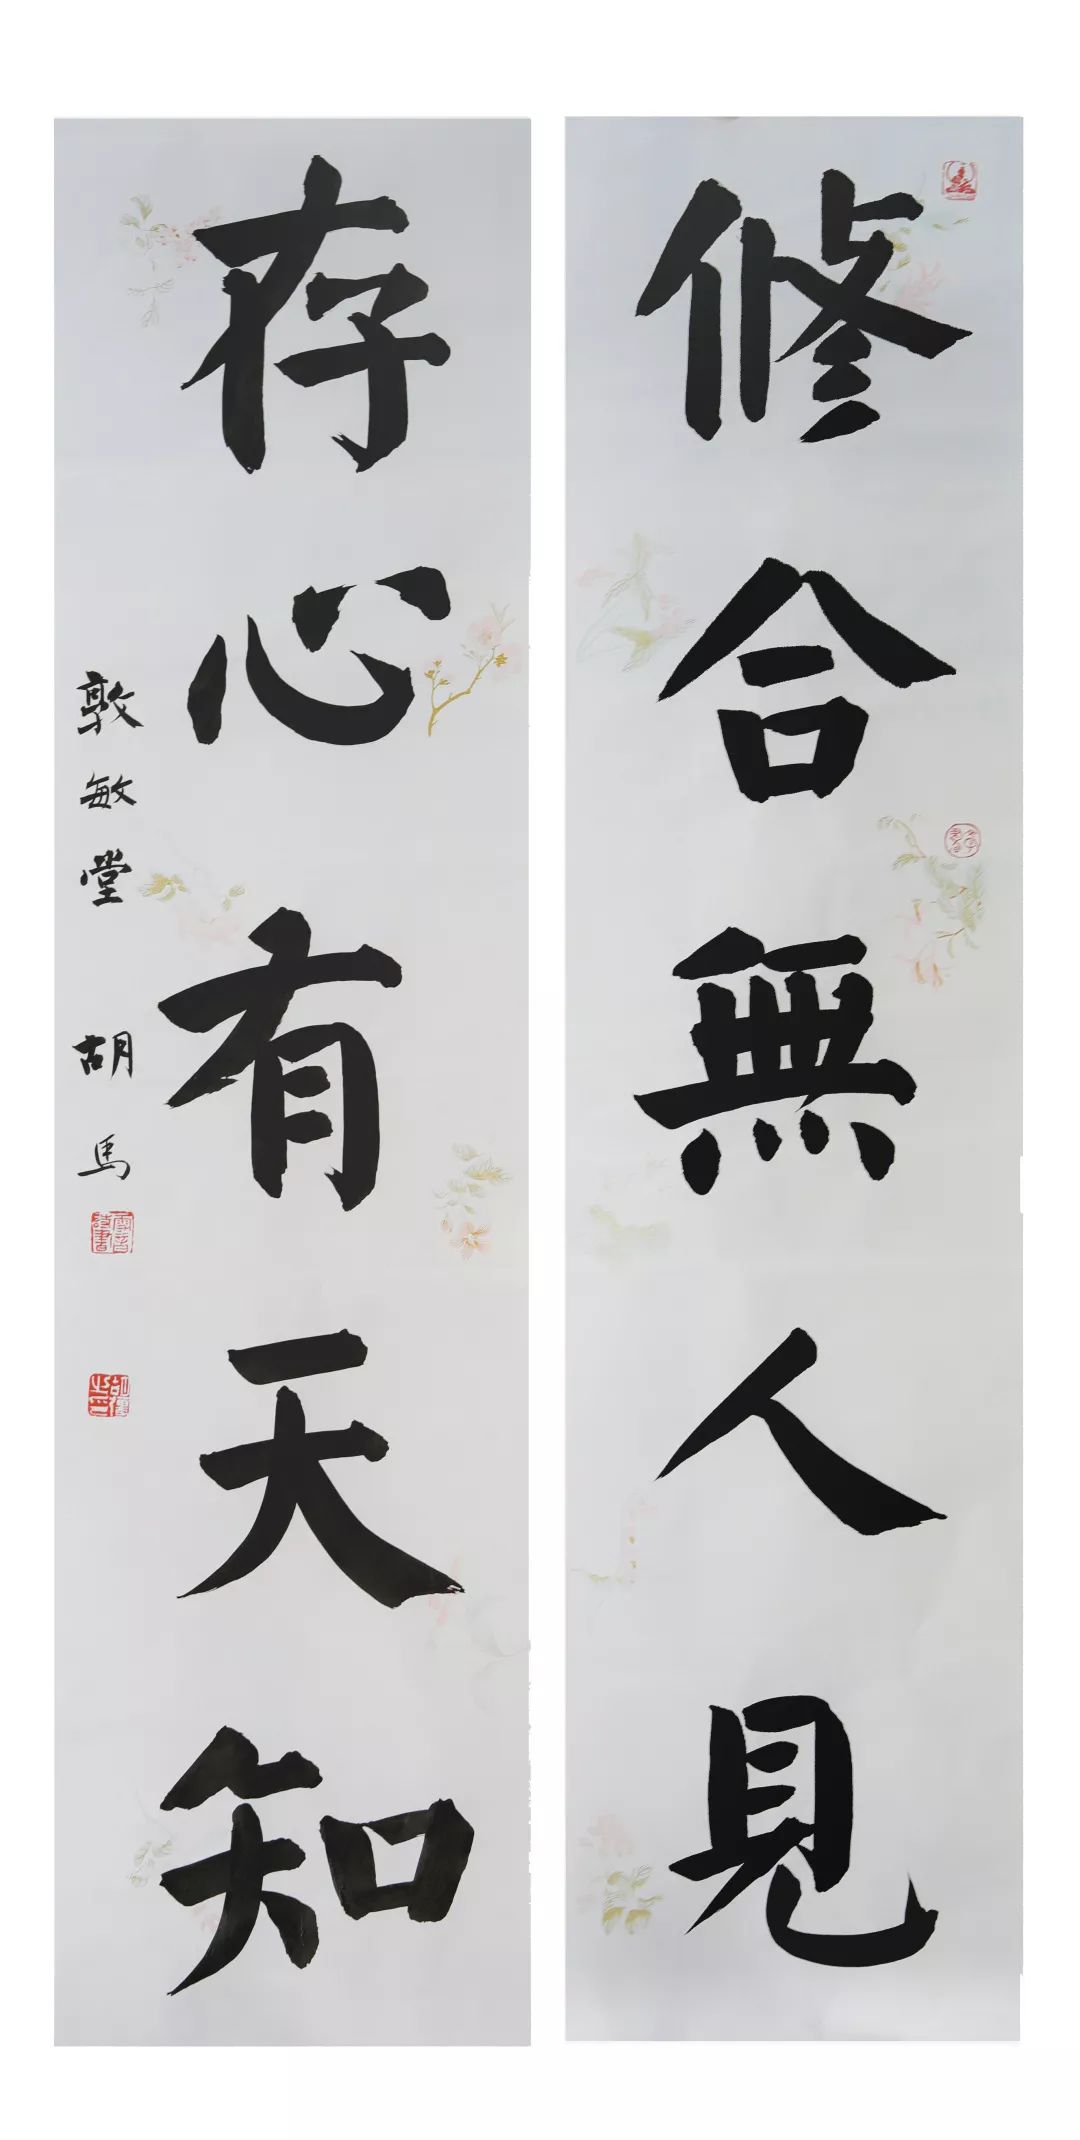 修合無人見
存心有天知
敦敏堂 胡馬